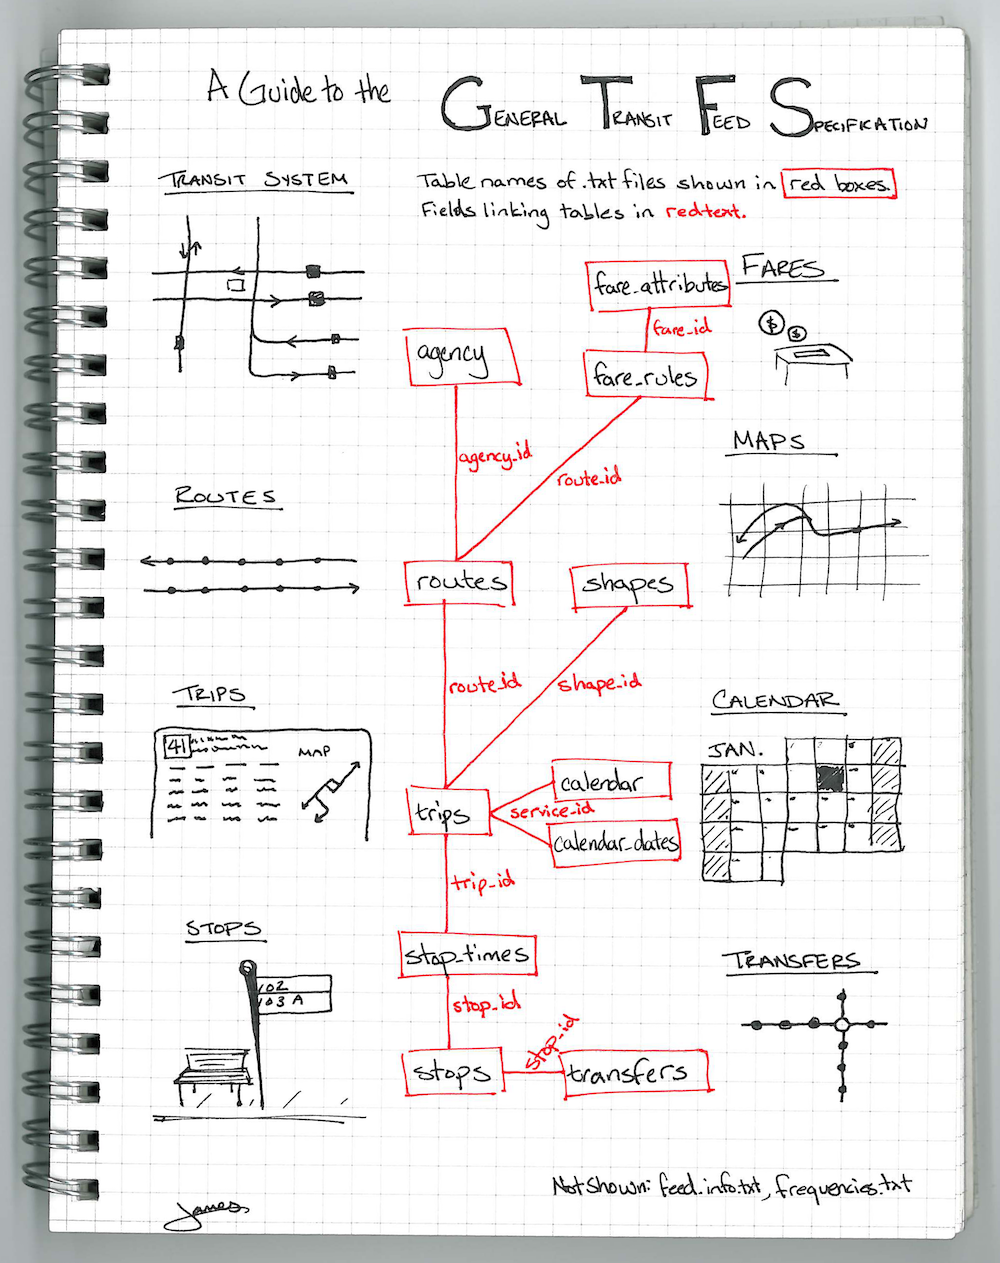 A Guide to the
GENERAL TRANSIT FEED SPECIFICATION
TRANSIT SYSTEM
Table names of .txt files shown in red boxes.
Fields linking tables in red text.
fare_attributes
FARES
fare_id
$
$
agency
fare_rules
MAPS
agency_id
route_id
ROUTES
routes
shapes
route_id
shape_id
TRIPS
CALENDAR
41
MAP
JAN.
calendar
trips
service_id
calendar_dates
trip_id
STOPS
stop_times
TRANSFERS
102
103 A
stop_id
stop_id
stops
transfers
Not shown: feed_info.txt, frequencies.txt
James